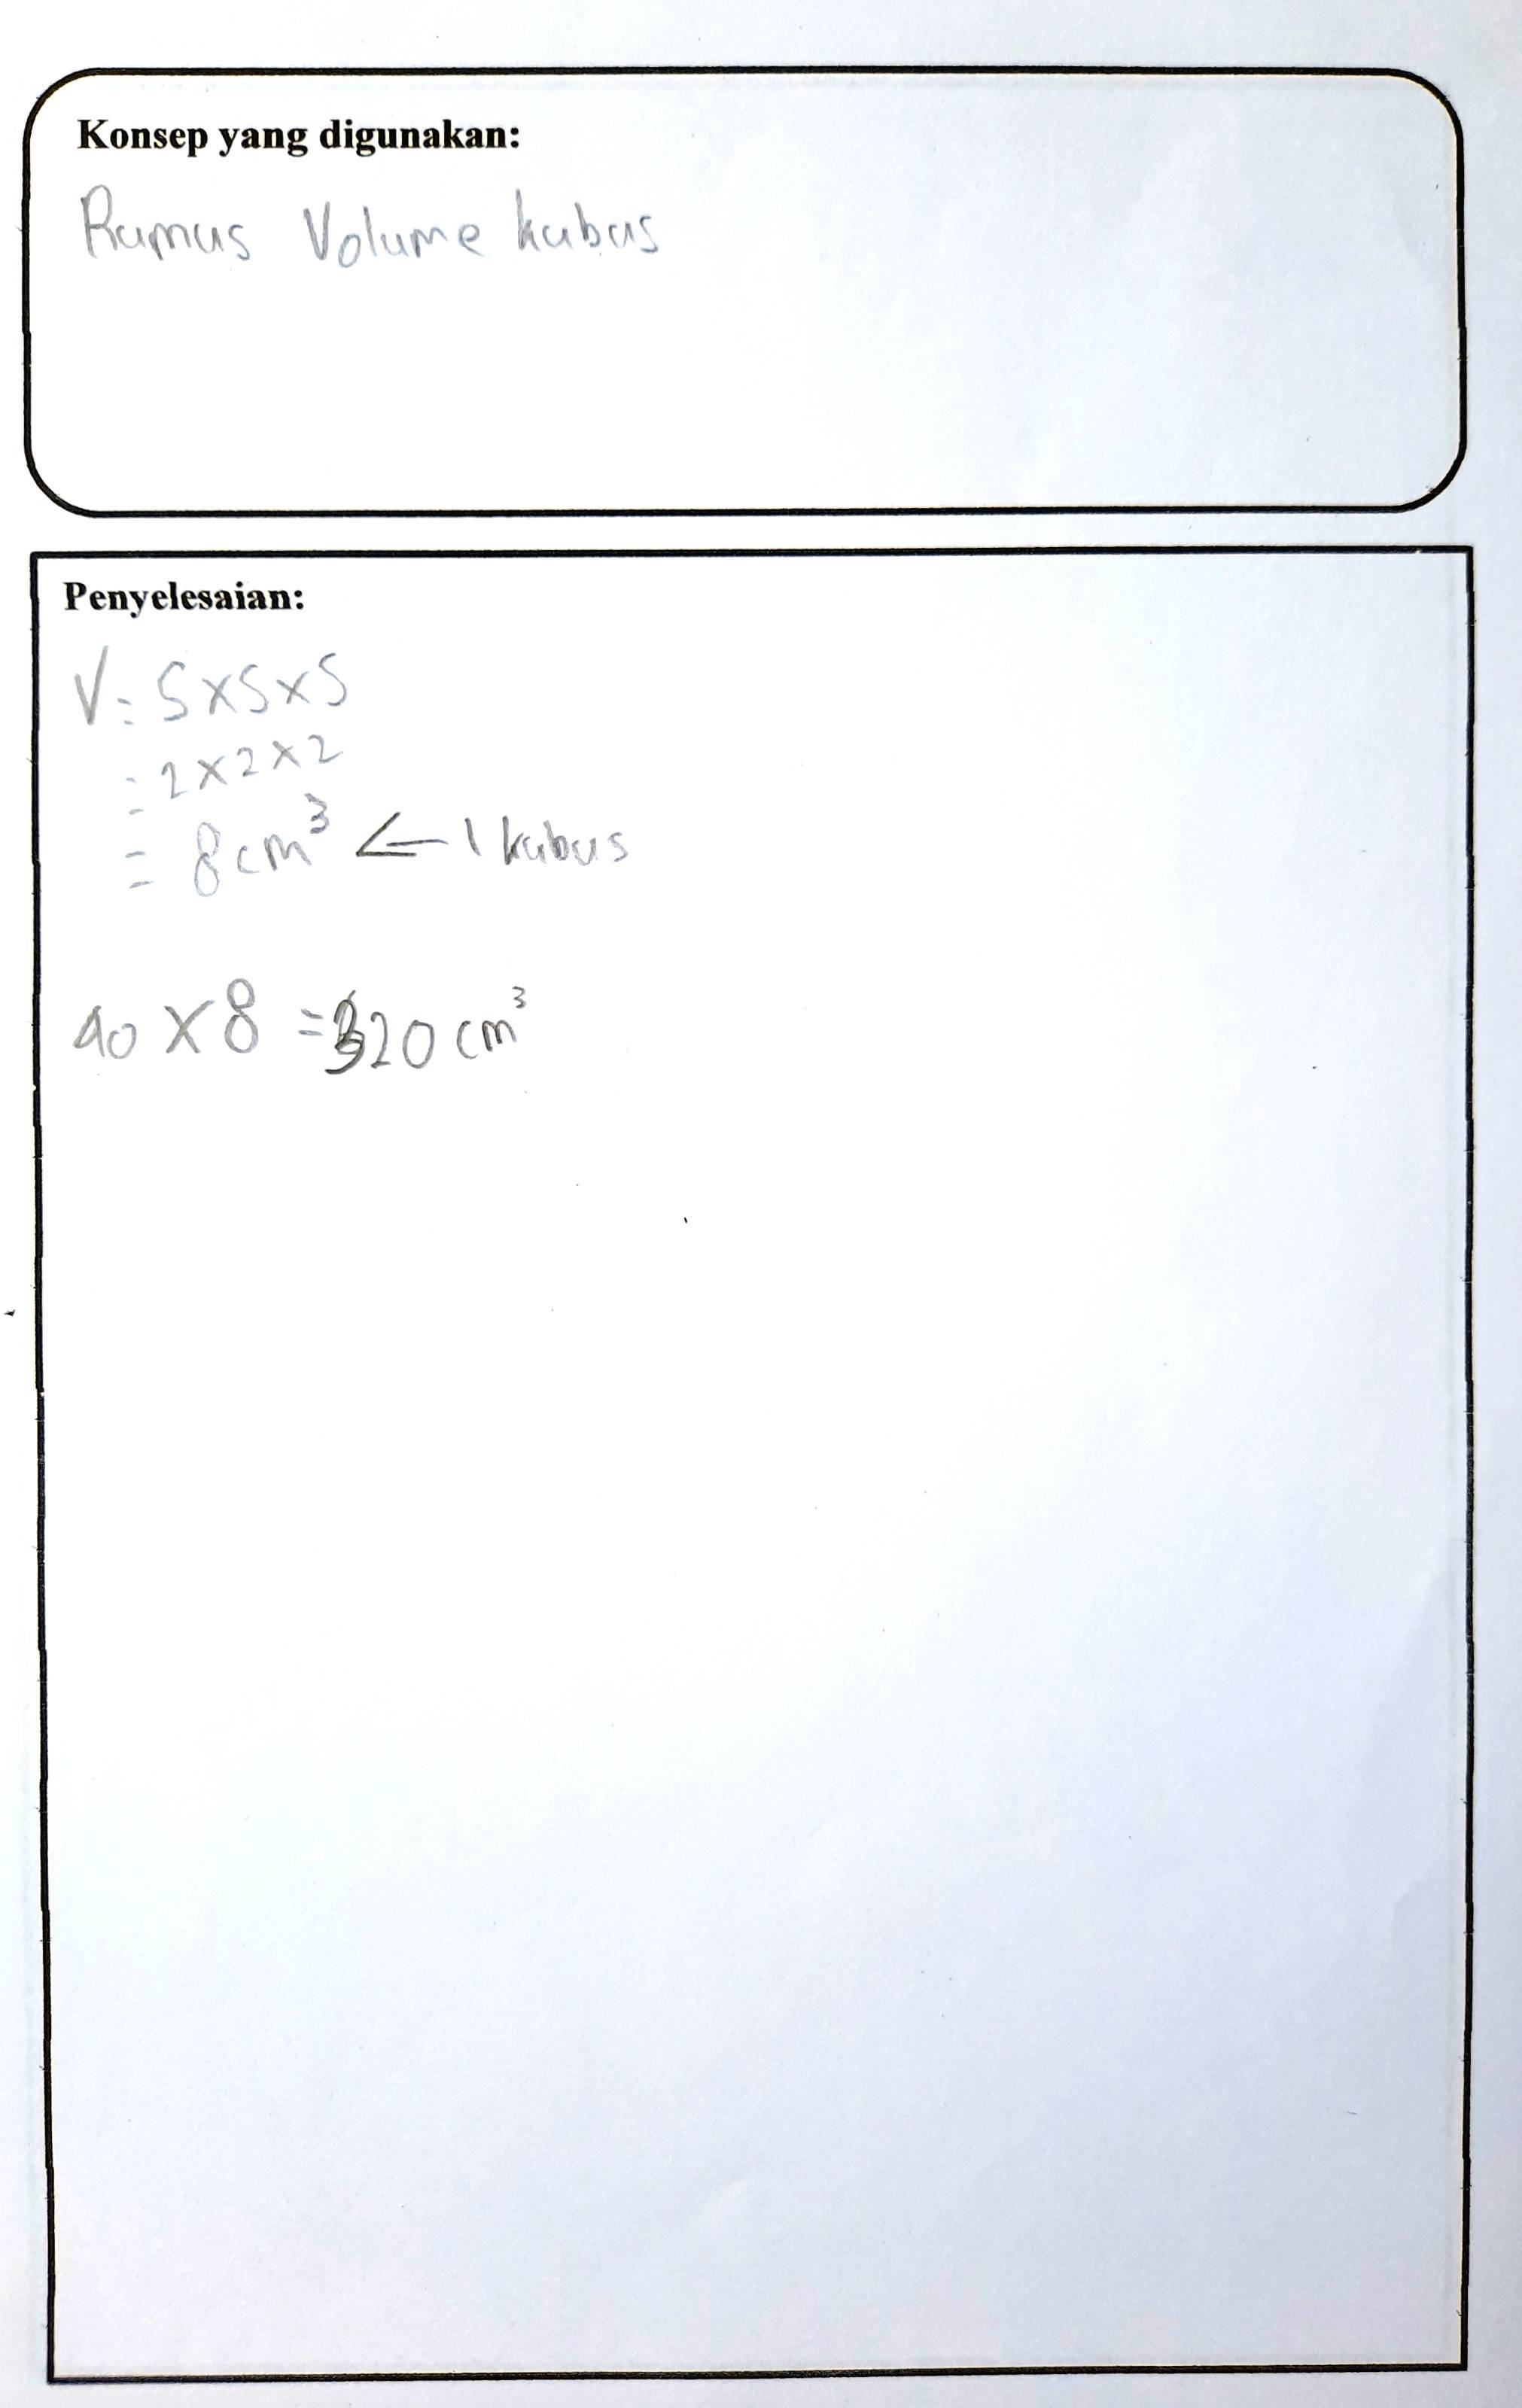 Konsep yang digunakan:
Rumus Volume kubus
Penyelesaian:
V = s x s x s
= 2 x 2 x 2
= 8 cm³ ← 1 kubus
40 x 8 = 320 cm³